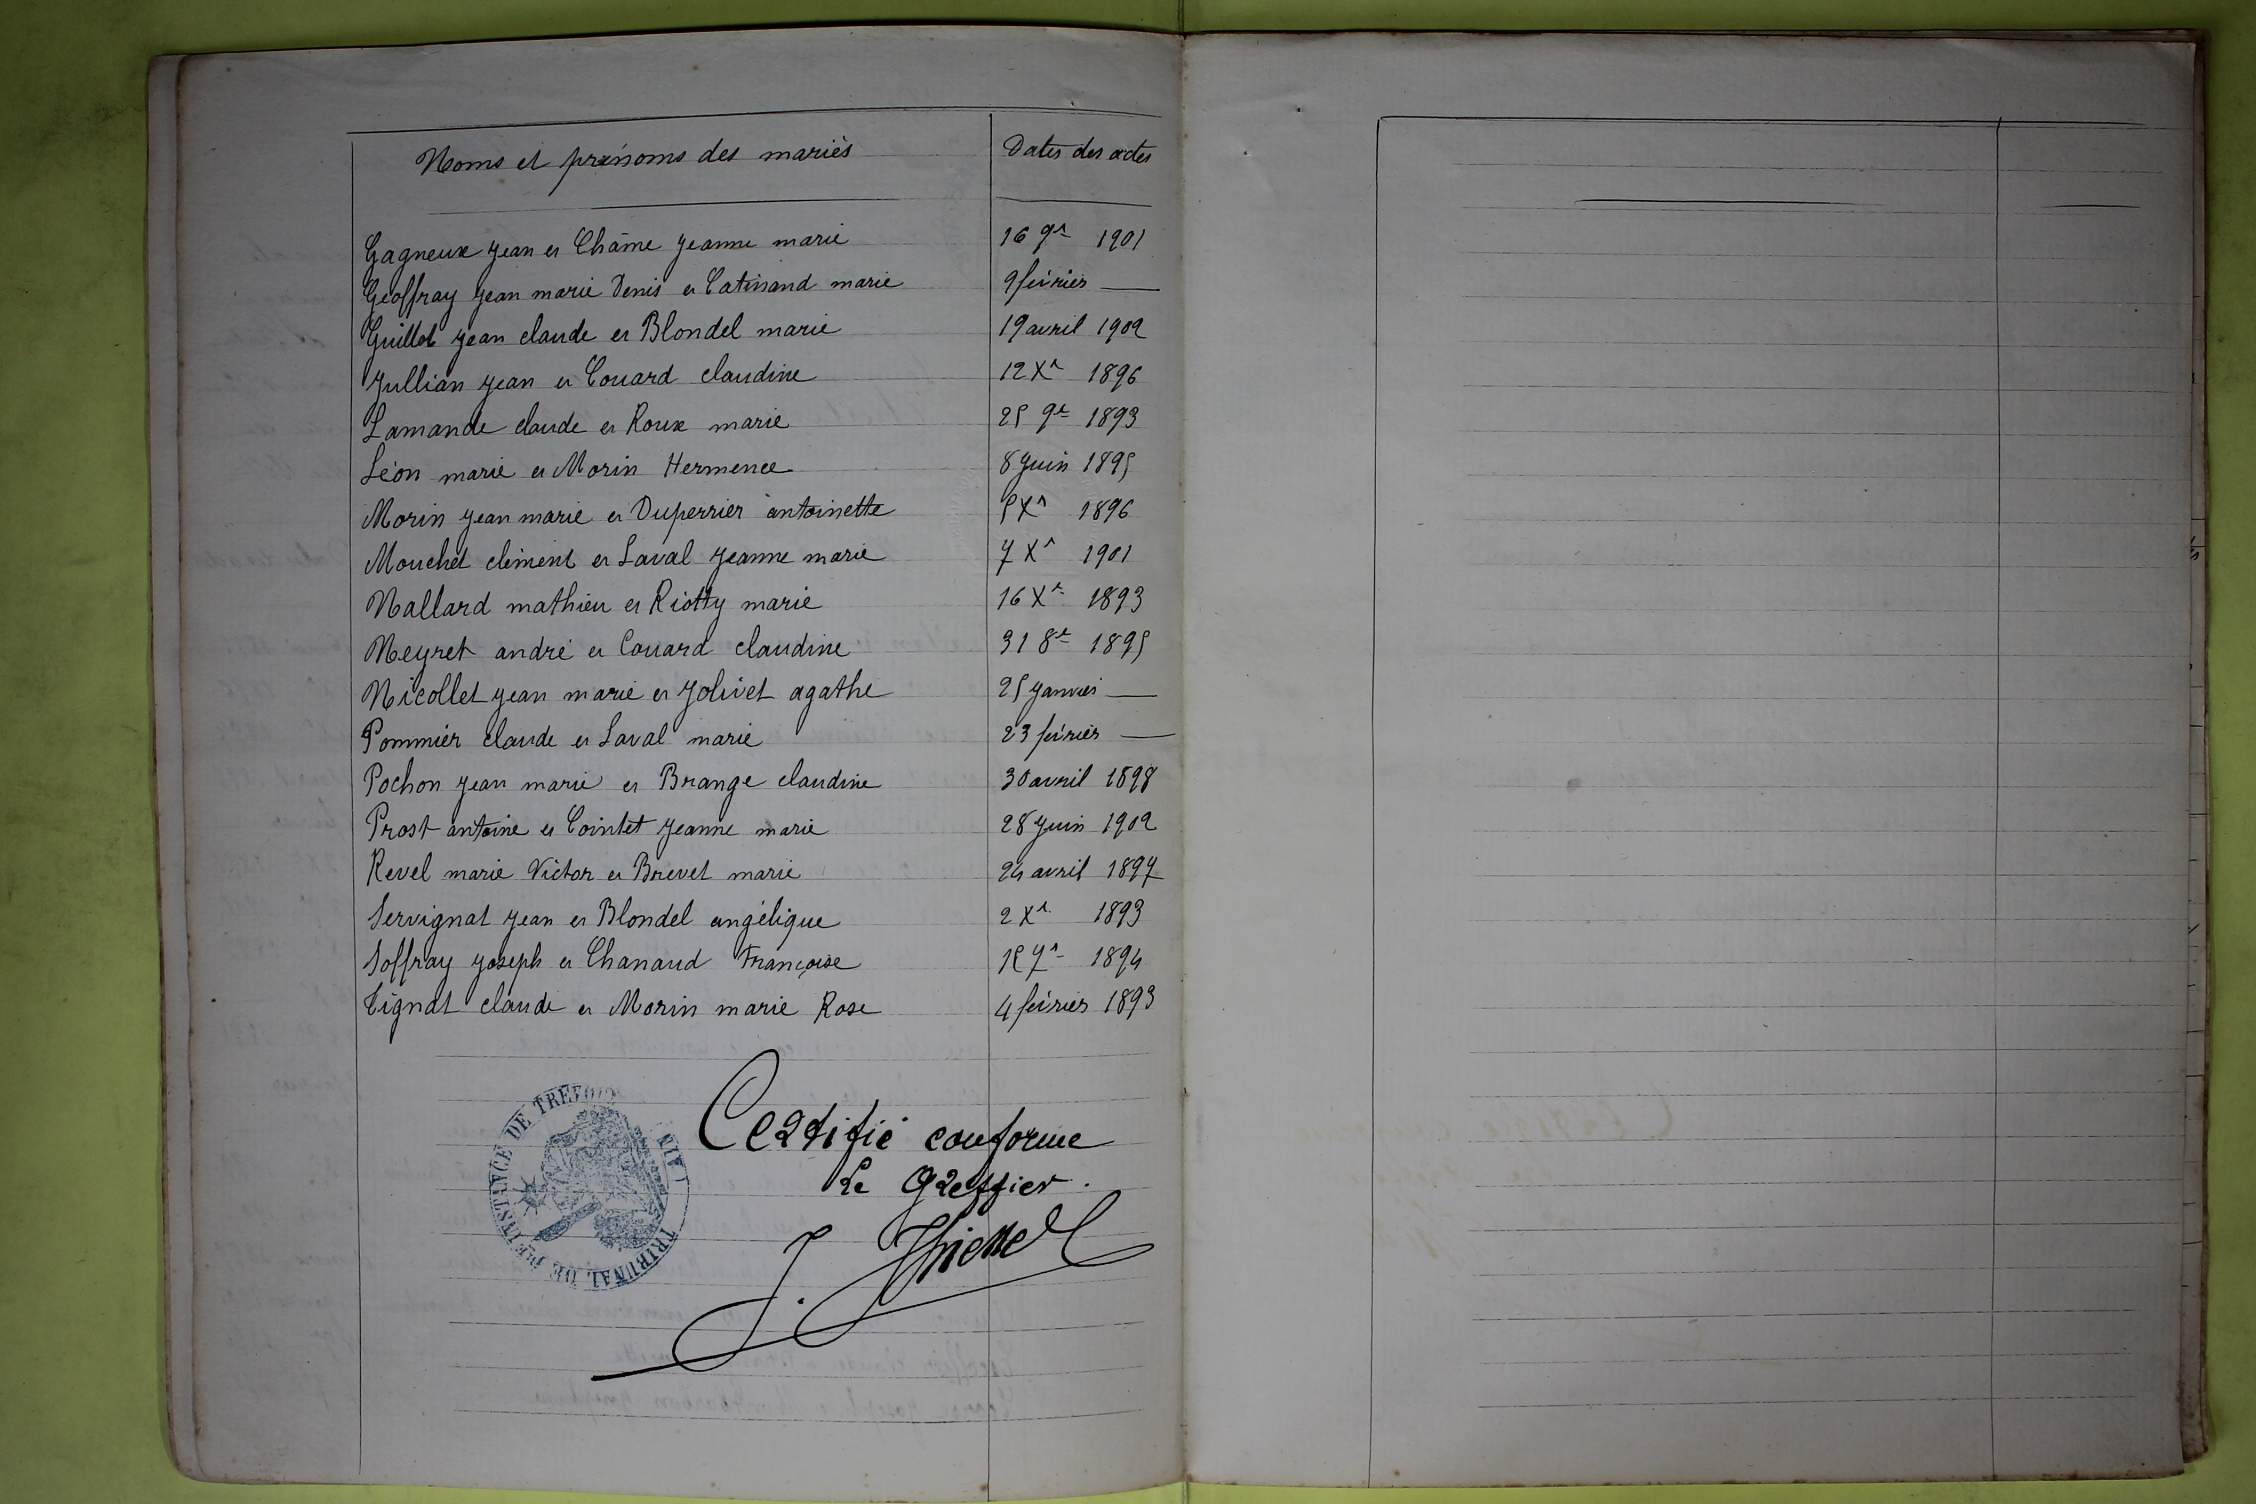 Noms et prénoms des mariés
Dates des actes
Gagneux Jean et Châme Jeanne marie 16 9r 1901
Geoffray Jean marie Denis et Catinand marie 9 février —
Guillot Jean claude et Blondel marie 19 avril 1902
Jullian Jean et Couard claudine 12 Xr 1896
Lamande claude et Roux marie 25 9r 1893
Léon marie et Morin Hermence 8 Juin 1895
Morin Jean marie et Duperrier antoinette 5 Xr 1896
Mouchet clément et Laval Jeanne marie 7 Xr 1901
Nallard mathieu et Riotty marie 16 Xr 1893
Neyret andré et Couard claudine 31 8r 1895
Nicollet Jean marie et Jolivet agathe 25 Janvier —
Pommier claude et Laval marie 23 février —
Pochon Jean marie et Brange claudine 30 avril 1898
Prost antoine et Cointet Jeanne marie 28 Juin 1902
Revel marie Victor et Brevet marie 24 avril 1897
Servignat Jean et Blondel angélique 2 Xr 1893
Soffray Joseph et Chanaud Françoise 15 7r 1894
Tignat claude et Morin marie Rose 4 février 1893
Certifié conforme
Le Greffier.
TRIBUNAL DE 1ÈRE INSTANCE DE TREVOUX